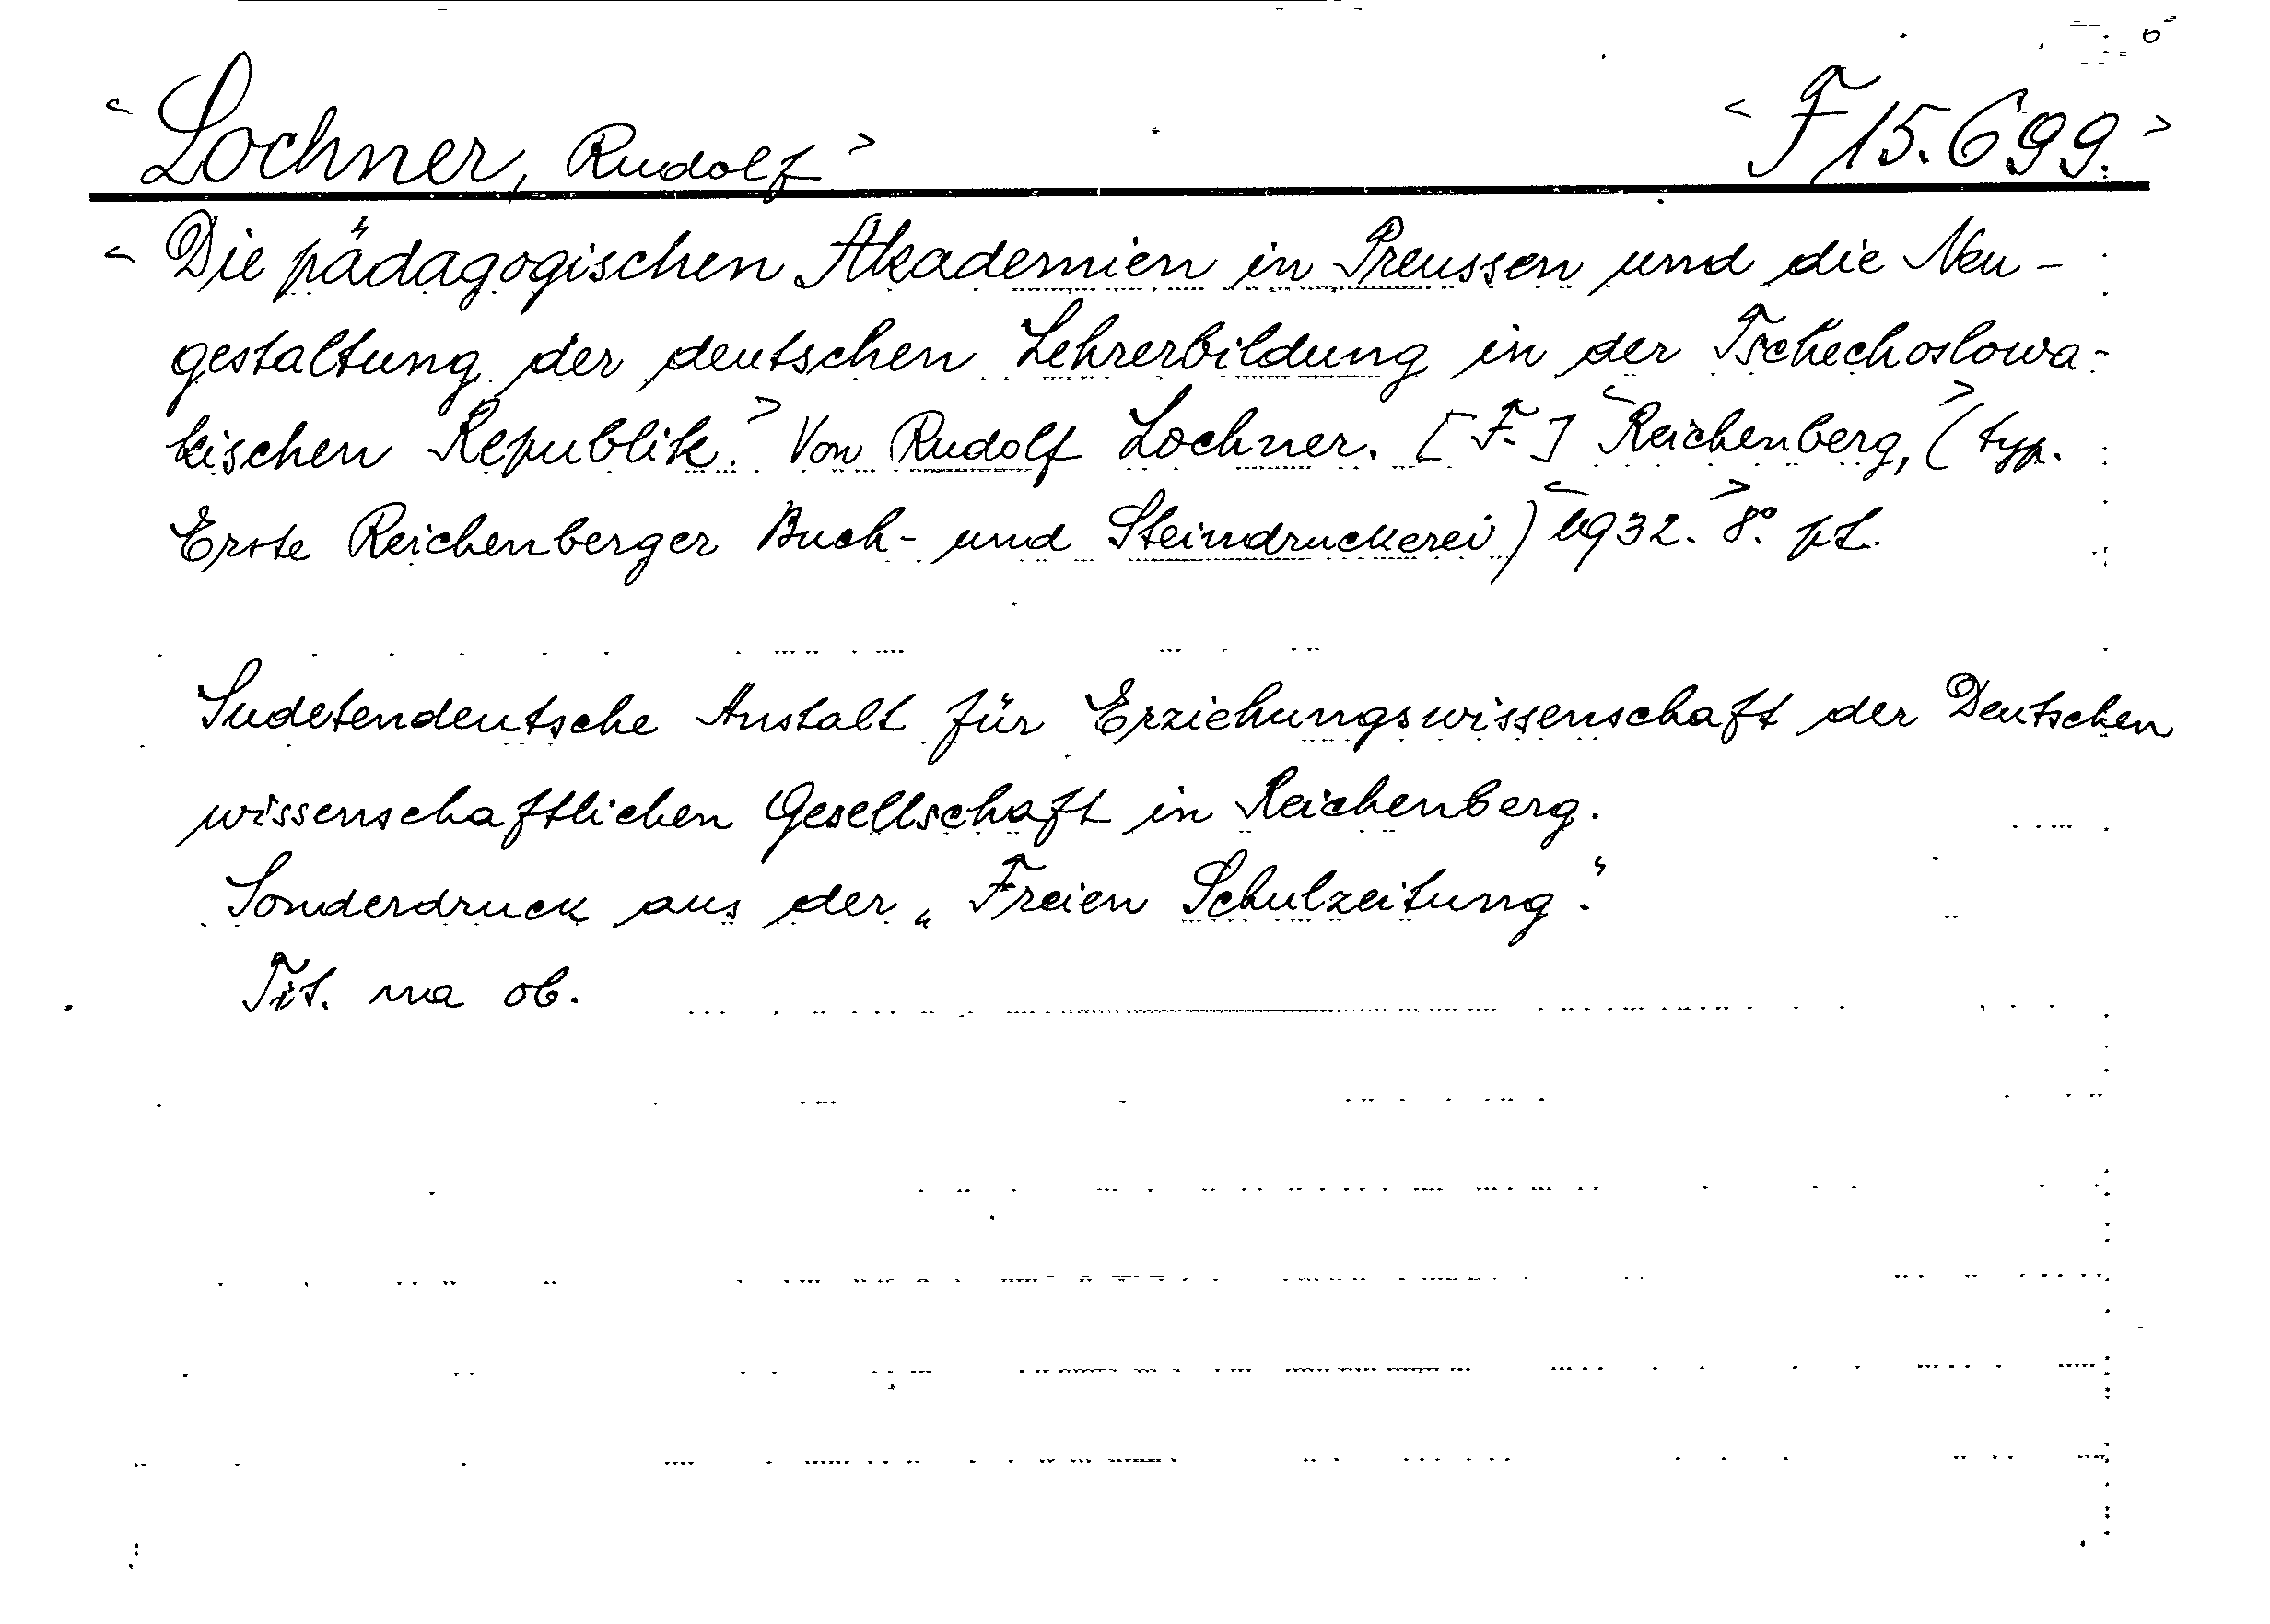 <Lochner, Rudolf> <F 15.699.>
<Die pädagogischen Akademien in Preussen und die Neu-
gestaltung der deutschen Lehrerbildung in der Tschechoslowa-
kischen Republik.> Von Rudolf Lochner. [F.] <Reichenberg,> (typ.
Erste Reichenberger Buch- und Steindruckerei) <1932.> 8°.
Sudetendeutsche Anstalt für Erziehungswissenschaft der Deutschen
wissenschaftlichen Gesellschaft in Reichenberg.
Sonderdruck aus der „Freien Schulzeitung".
Tit. na ob.